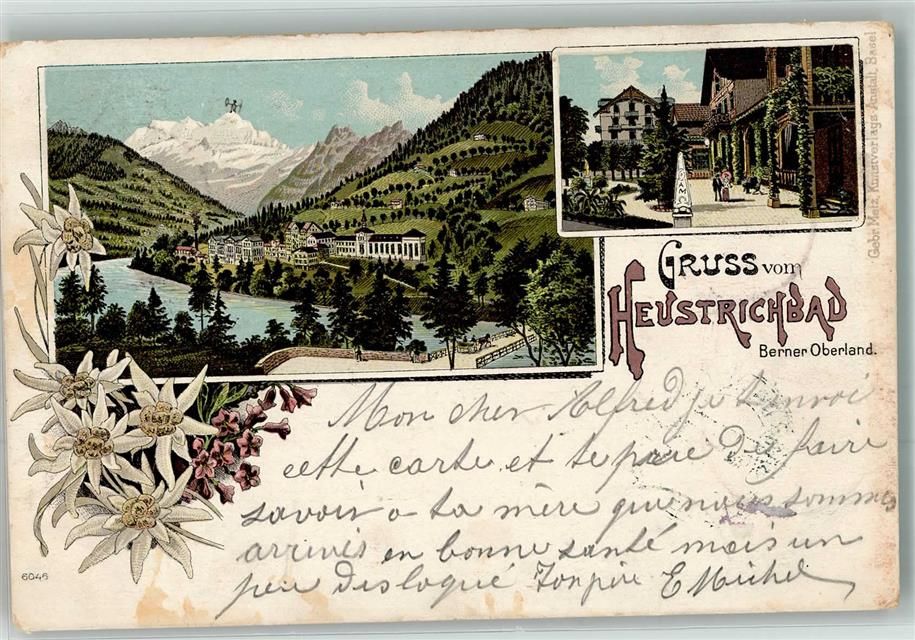 Gebr. Metz, Kunstverlags-Anstalt, Basel
GRUSS vom
HEUSTRICHBAD
Berner Oberland.
Mon cher Alfred je t'envoi
cette carte et te prie du faire
savoir a ta mère que nous sommes
arrivés en bonne santé mais un
peu disloqué Ton père E Michel
6046